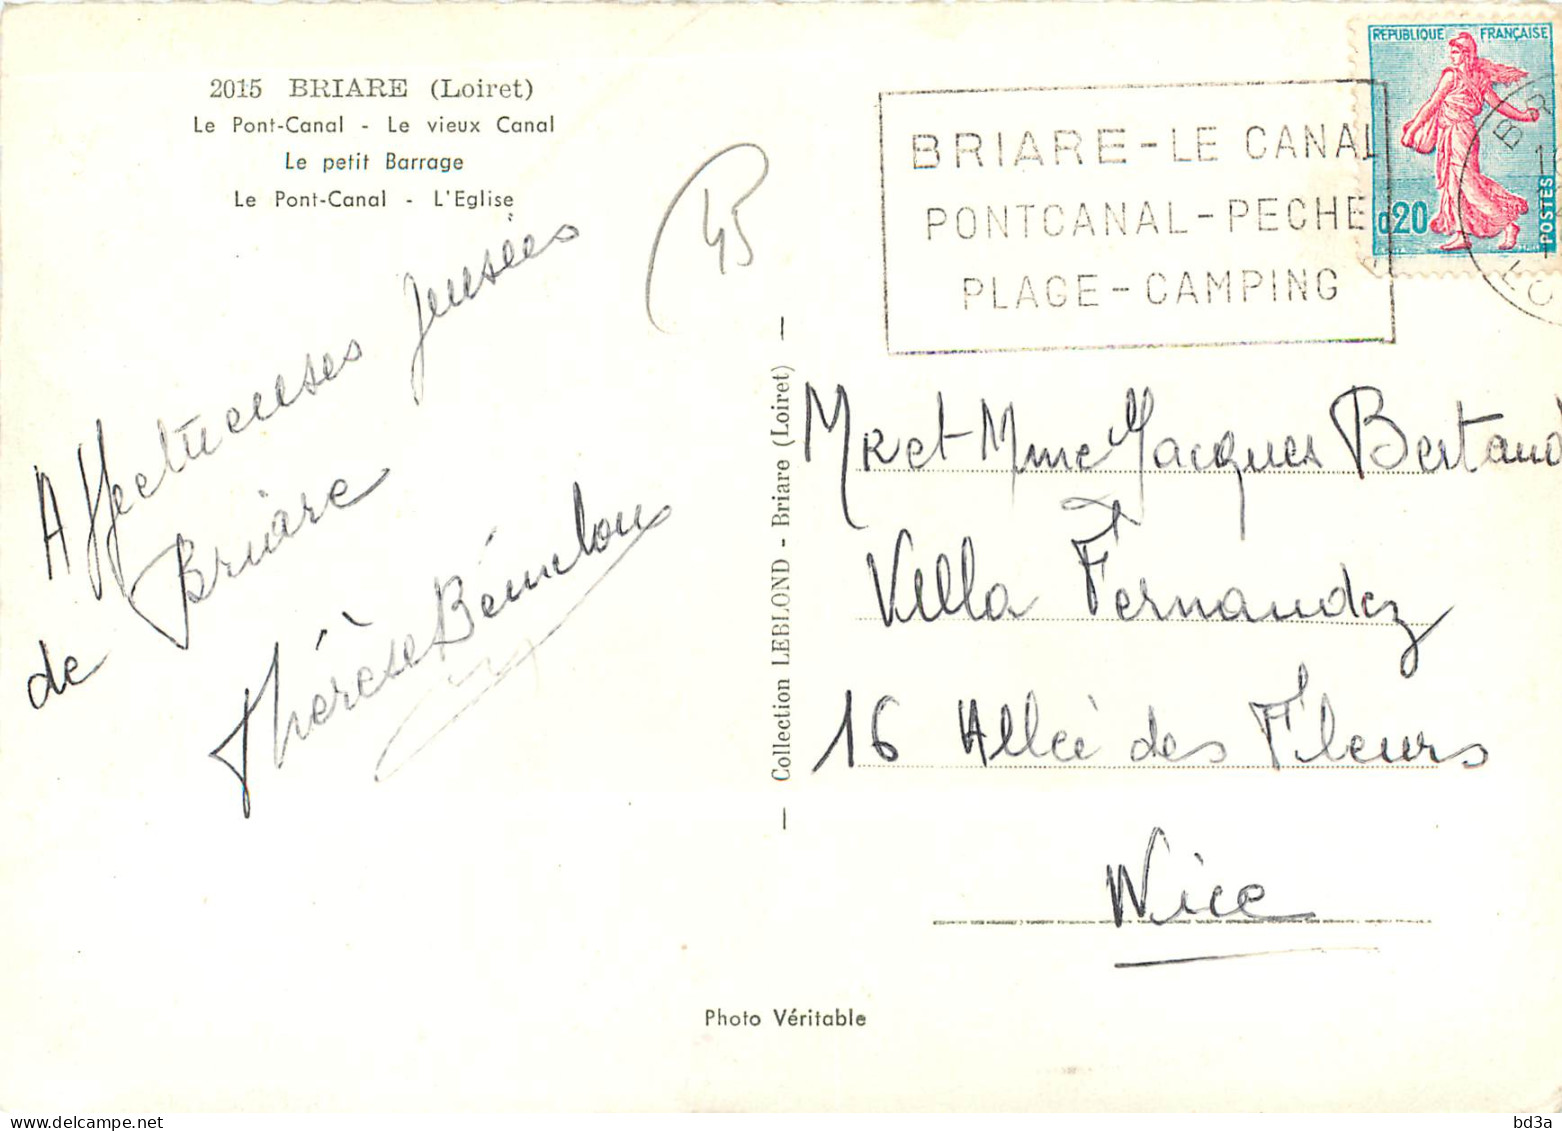 2015 BRIARE (Loiret)
Le Pont-Canal - Le vieux Canal
Le petit Barrage
Le Pont-Canal - L'Eglise
45
Affectueuses pensées
de Briare
Thérèse
Collection LEBLOND - Briare (Loiret)
BRIARE-LE CANAL
PONTCANAL-PECHE
PLAGE-CAMPING
REPUBLIQUE FRANÇAISE
0,20
POSTES
Mr et Mme Jacques
Villa Fernandez
16 Allée des Fleurs
Nice
Photo Véritable
bd3a